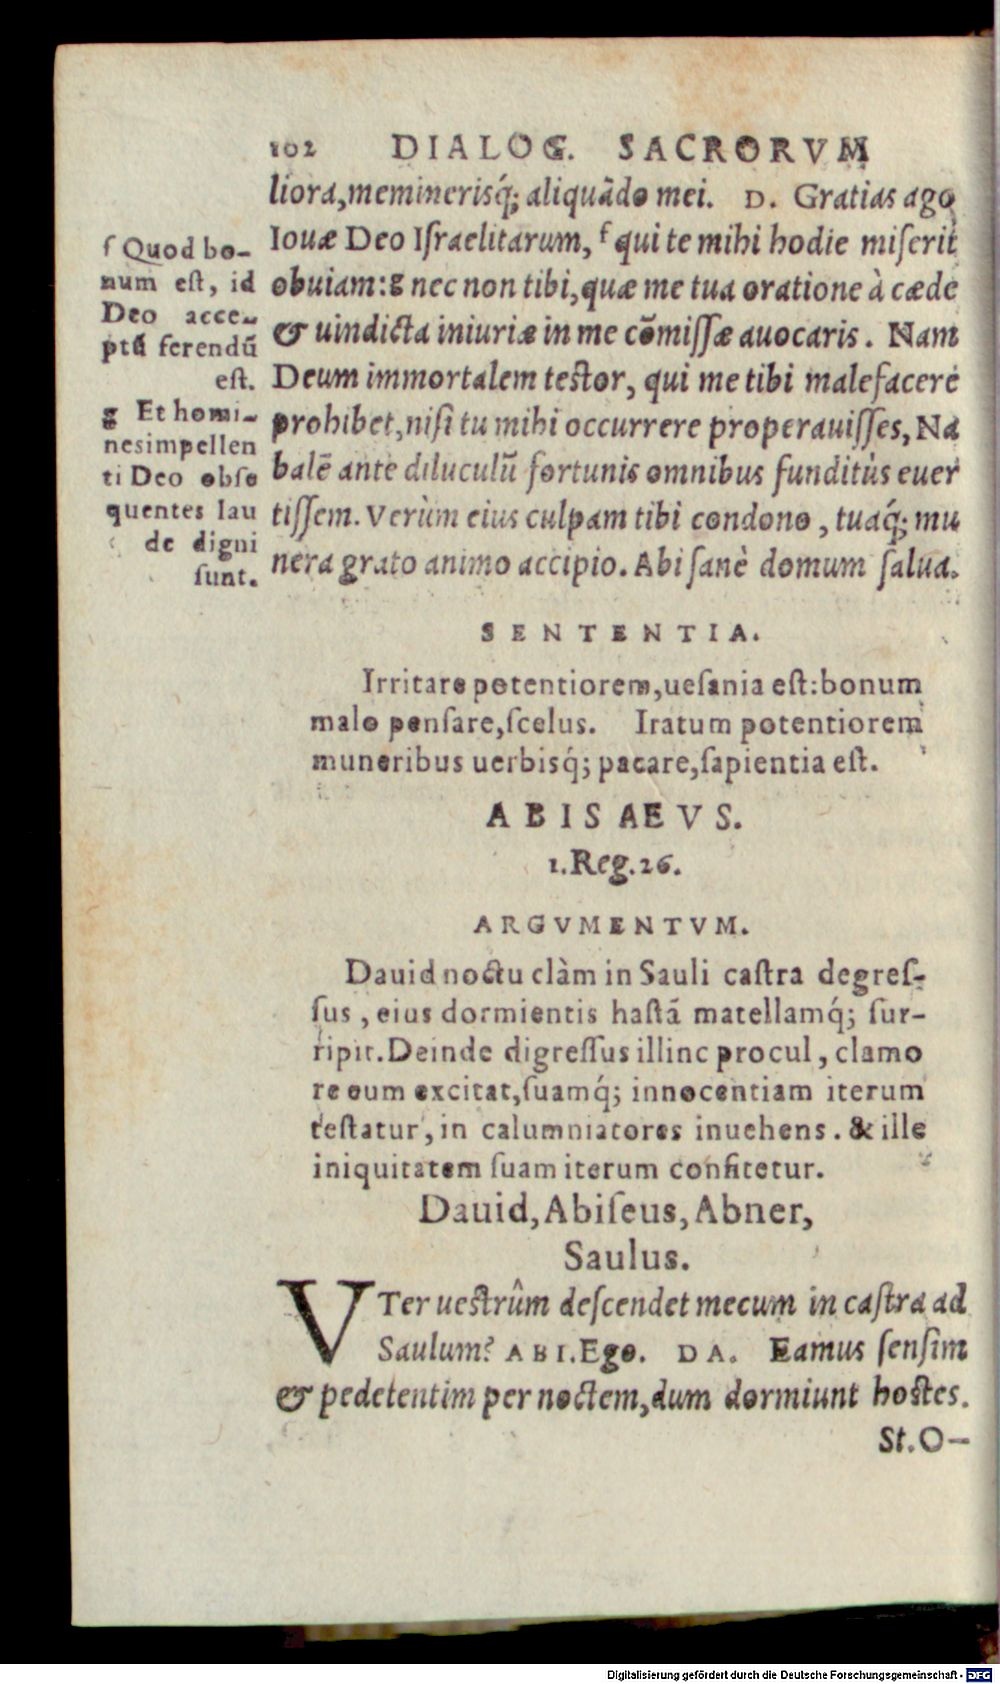 102 DIALOG. SACRORVM
liora,meminerisq́; aliquãdo mei. D. Gratias ago
Iouæ Deo Iſraelitarum, ᶠ qui te mihi hodie miſerit
obuiam:g nec non tibi,quæ me tua oratione à cæde
& uindicta iniuriæ in me cõmiſſæ auocaris. Nam
Deum immortalem teſtor, qui me tibi malefacere
prohibet,niſi tu mihi occurrere properauiſſes, Na
balẽ ante diluculũ fortunis omnibus funditùs euer
tiſſem. Verùm eius culpam tibi condono, tuaq́; mu
nera grato animo accipio. Abi ſanè domum ſalua.
f Quod bo-
num eſt, id
Deo acce-
ptũ ferendũ
eſt.
g Et homi-
nesimpellen
ti Deo obſe
quentes lau
de digni
ſunt.
SENTENTIA.
Irritare potentiorem,ueſania eſt:bonum
malo penſare,ſcelus. Iratum potentiorem
muneribus uerbisq́; pacare,ſapientia eſt.
ABISAEVS.
1.Reg.26.
ARGVMENTVM.
Dauid noctu clàm in Sauli caſtra degreſ-
ſus, eius dormientis haſtã matellamq́; ſur-
ripit. Deinde digreſſus illinc procul, clamo
re eum excitat,ſuamq́; innocentiam iterum
teſtatur, in calumniatores inuehens. & ille
iniquitatem ſuam iterum confitetur.
Dauid, Abiſeus, Abner,
Saulus.
VTer ueſtrûm deſcendet mecum in caſtra ad
Saulum? ABI. Ego. DA. Eamus ſenſim
& pedetentim per noctem,dum dormiunt hoſtes.
St.O-
Digitalisierung gefördert durch die Deutsche Forschungsgemeinschaft - DFG